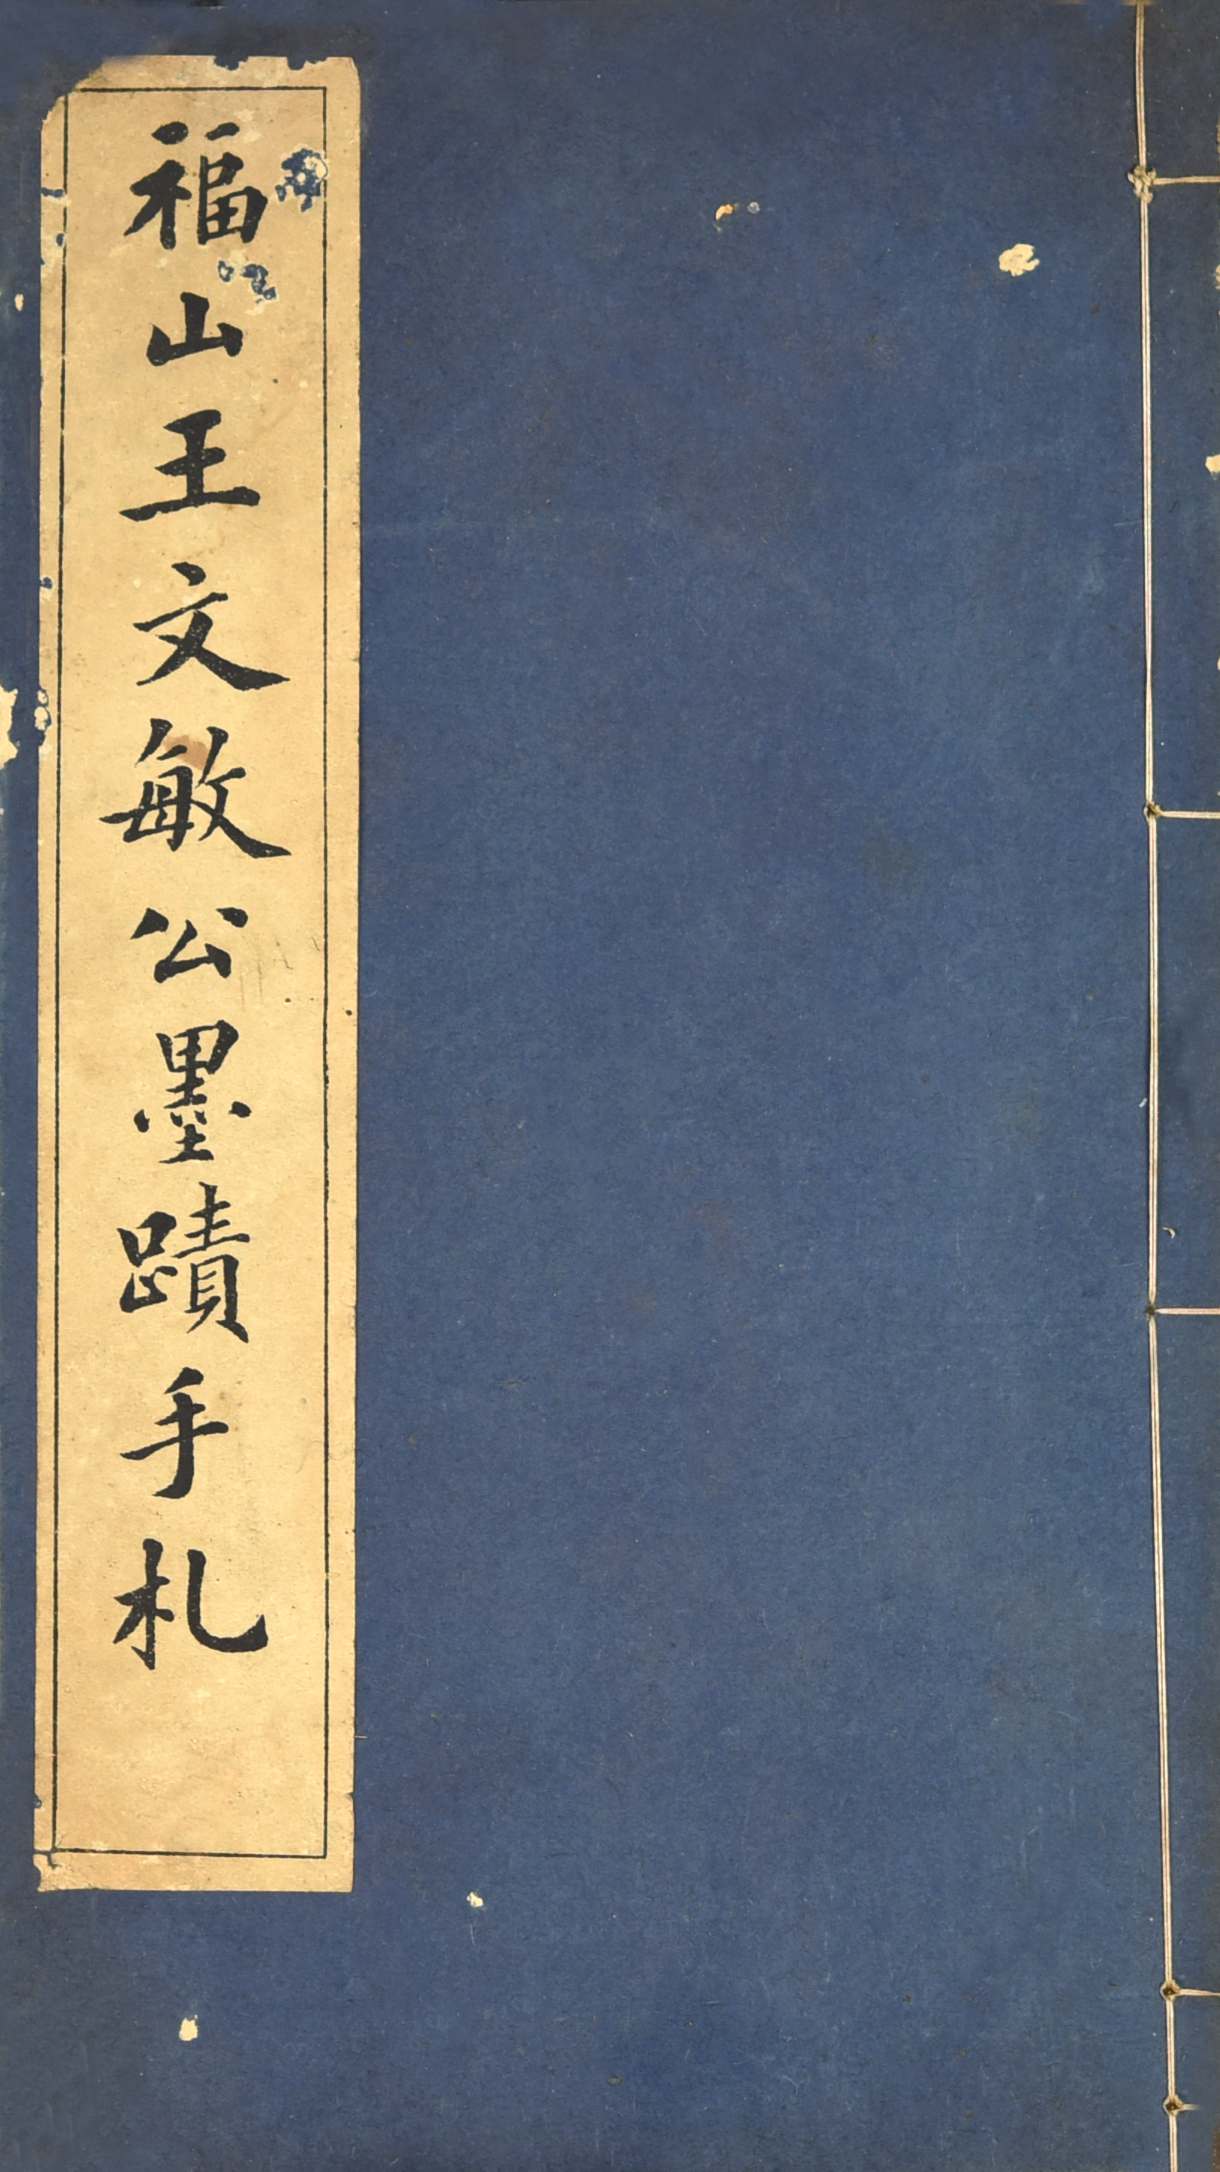 福山王文敏公墨蹟手札